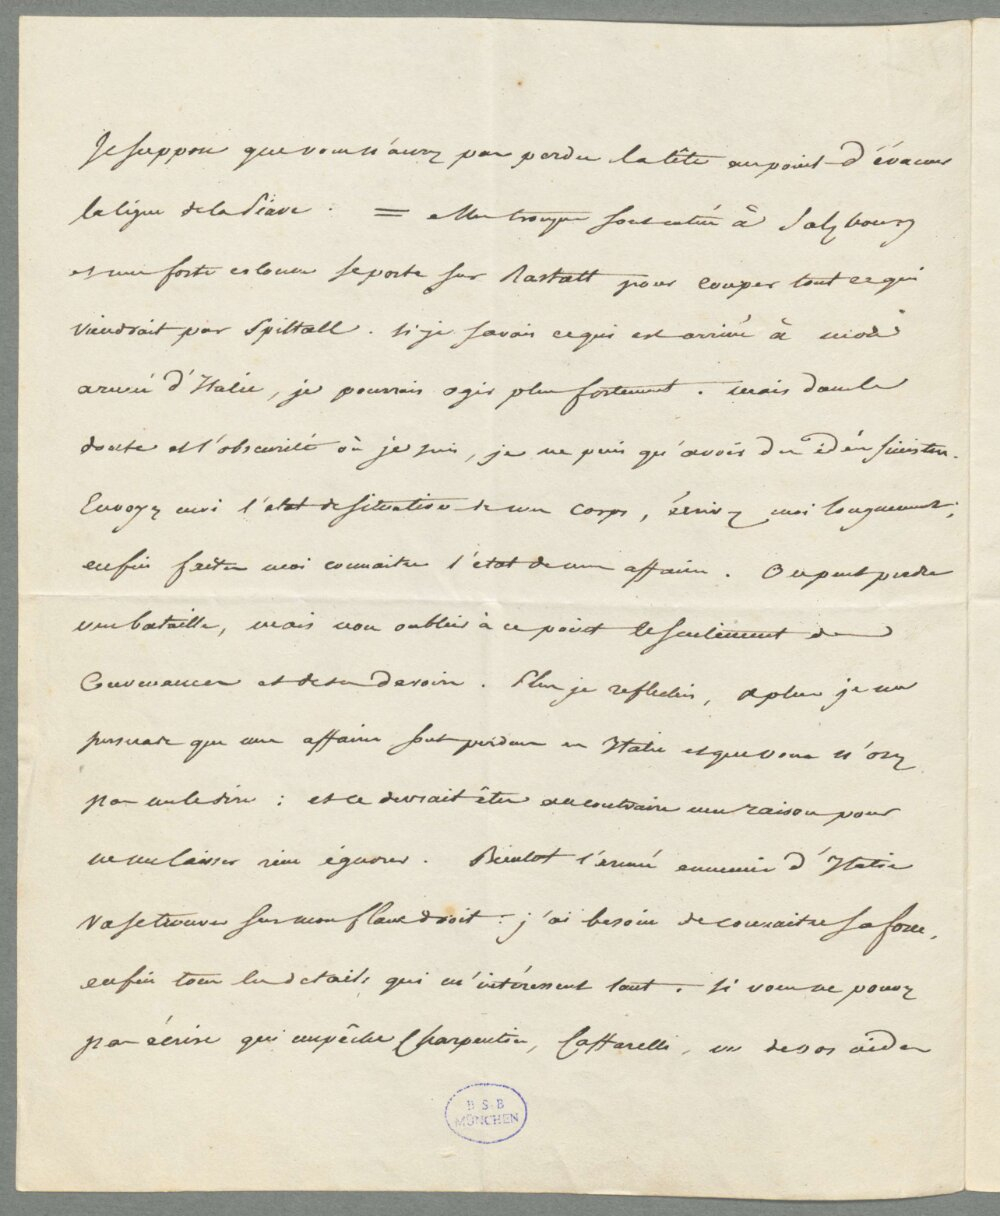 Je suppose que vous n'aurez pas perdu la tête au point d'évacuer
la ligne de la Piave. = Mes troupes sont entré à Salzbourg
et une forte colonne se porte sur Rastatt pour couper tout ce qui
viendroit par Spittall. Si je savais ce qui est arrivé à mon
armée d'Italie, je pourrais agir plus fortement. mais dans le
doute et l'obscurité où je suis, je ne puis qu'avoir des idées sinistres.
Envoyez moi l'état de situation de mes corps, écrivez moi longuement;
enfin faites moi connaitre l'état de mes affaires. On peut perdre
une bataille, mais non oublier à ce point le sentiment des
convenances et de son devoir. Plus je reflechis, et plus je me
persuade que mes affaires sont perdues en Italie et que vous n'osez
pas me le dire: et ce devrait être au contraire une raison pour
ne me laisser rien ignorer. Bientot l'armée ennemie d'Italie
va se trouver sur mon flanc droit: j'ai besoin de connaitre sa force,
enfin tous les details qui m'intéressent tant. Si vous ne pouvez
pas écrire qui empêche Charpentier, Caffarelli, un de vos aides
B S B
MÜNCHEN